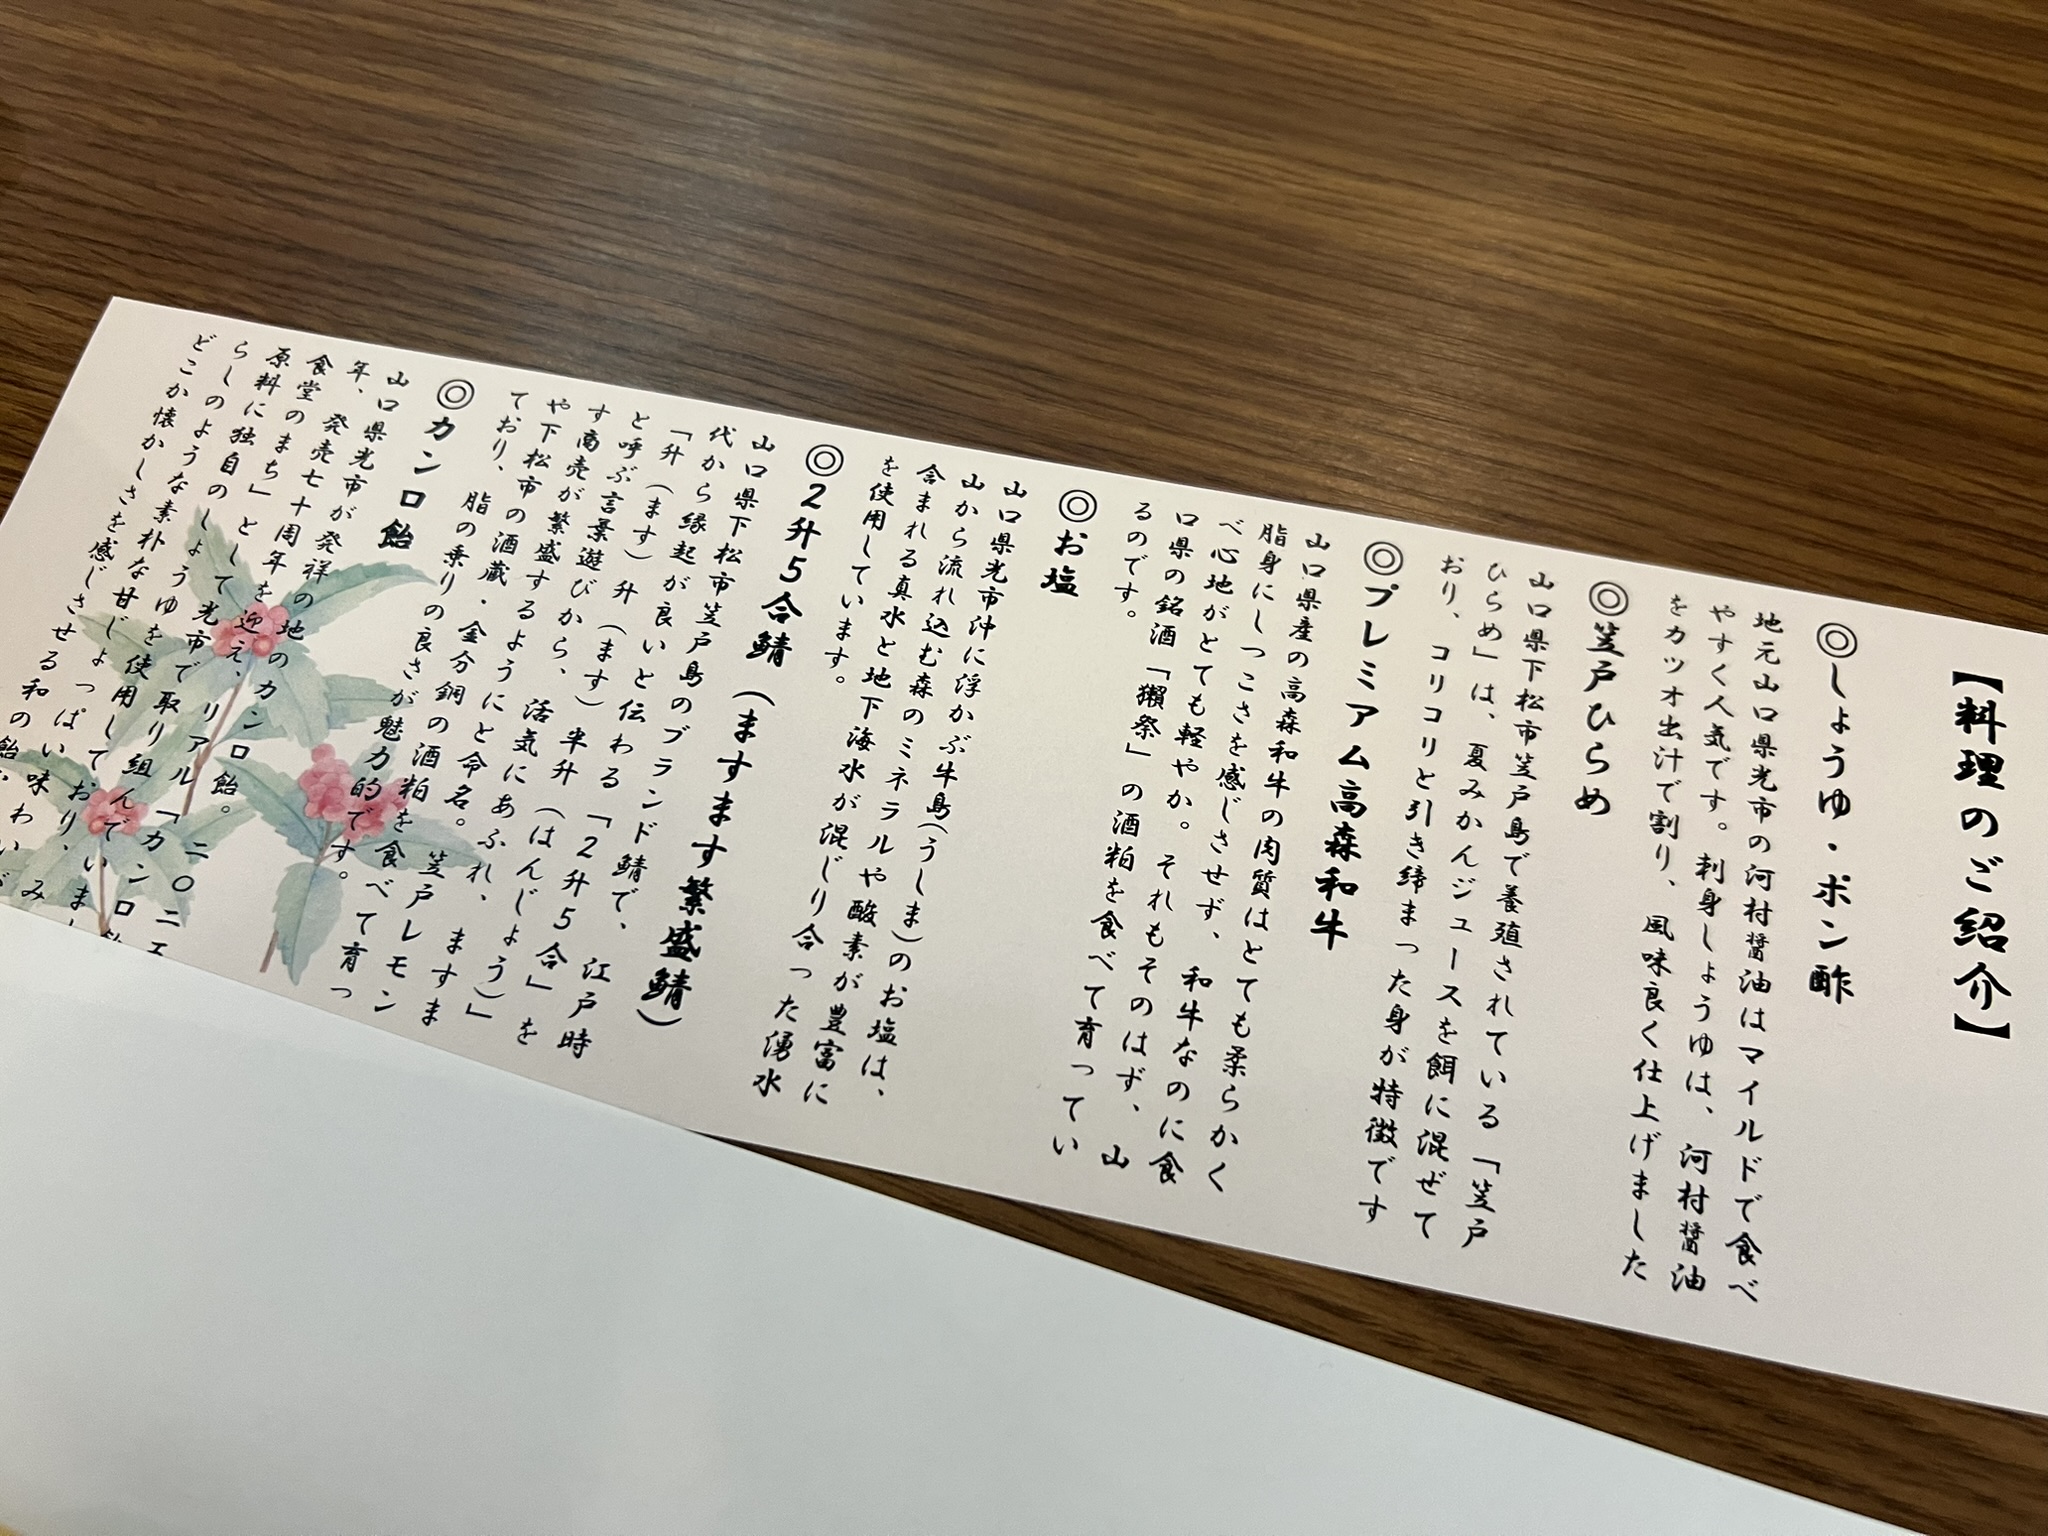 【料理のご紹介】
◎しょうゆ・ポン酢
地元山口県光市の河村醤油はマイルドで食べ
やすく人気です。刺身しょうゆは、河村醤油
をカツオ出汁で割り、風味良く仕上げました
◎笠戸ひらめ
山口県下松市笠戸島で養殖されている「笠戸
ひらめ」は、夏みかんジュースを餌に混ぜて
おり、コリコリと引き締まった身が特徴です
◎プレミアム高森和牛
山口県産の高森和牛の肉質はとても柔らかく
脂身にしつこさを感じさせず、和牛なのに食
べ心地がとても軽やか。それもそのはず、山
口県の銘酒「獺祭」の酒粕を食べて育ってい
るのです。
◎お塩
山口県光市沖に浮かぶ牛島(うしま)のお塩は、
山から流れ込む森のミネラルや酸素が豊富に
含まれる真水と地下海水が混じり合った湧水
を使用しています。
◎2升5合鯖（ますます繁盛鯖）
山口県下松市笠戸島のブランド鯖で、江戸時
代から縁起が良いと伝わる「2升5合」を
「升（ます）升（ます）半升（はんじょう）」
と呼ぶ言葉遊びから、活気にあふれ、ますま
す商売が繁盛するようにと命名。笠戸レモン
や下松市の酒蔵・金分銅の酒粕を食べて育っ
ており、脂の乗りの良さが魅力的です。
◎カンロ飴
山口県光市が発祥の地のカンロ飴。二〇二五
年、発売七十周年を迎え、リアル「カンロ飴
食堂のまち」として光市で取り組んでいまし
原料に独自のしょうゆを使用しており、み
らしのようなな甘じょっぱい味わいが
どこか懐かしさを感じさせる和の飴